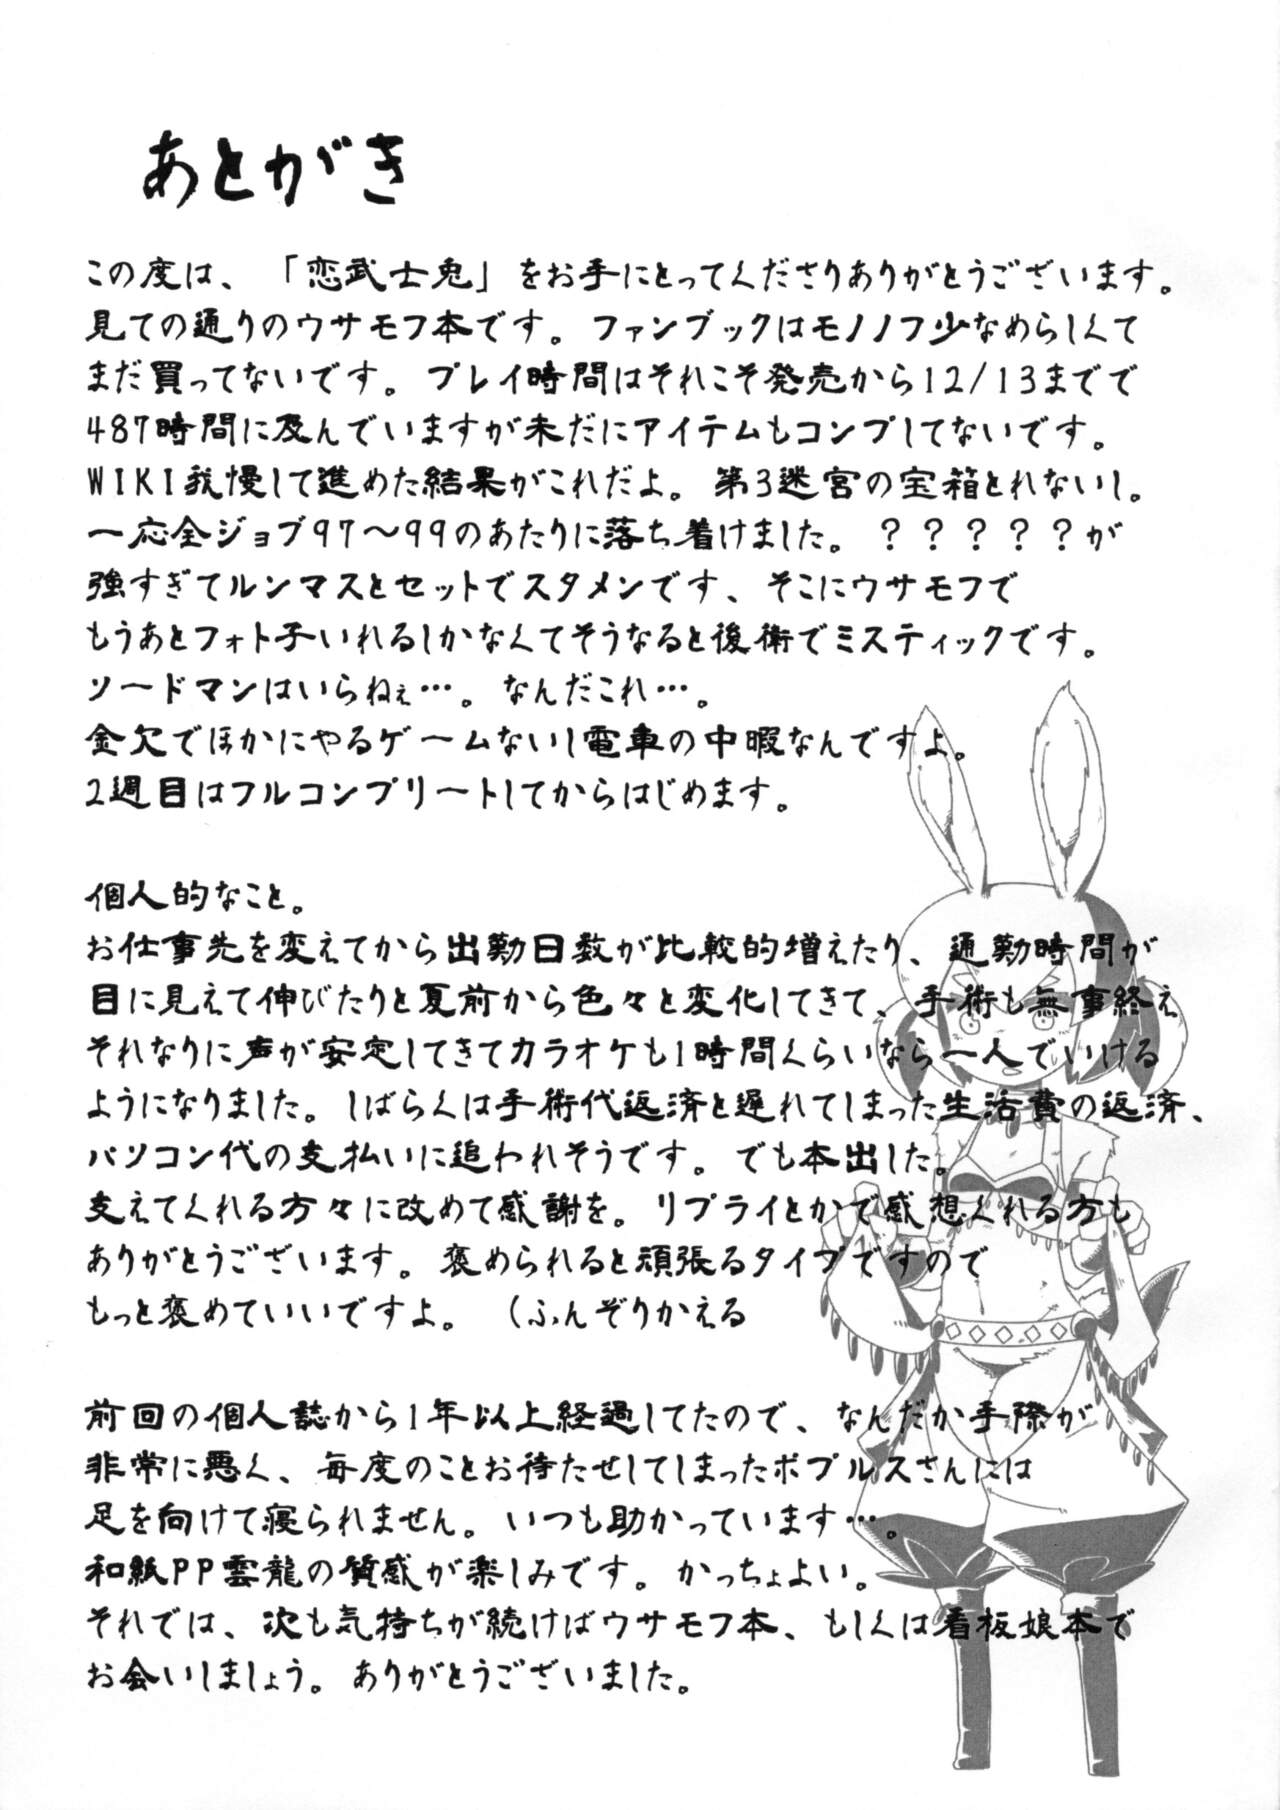 あとがき
この度は、「恋武士兎」をお手にとってくださりありがとうございます。
見ての通りのウサモフ本です。ファンブックはモノノフ少なめらしくて
まだ買ってないです。プレイ時間はそれこそ発売から12/13までで
487時間に及んでいますが未だにアイテムもコンプしてないです。
WIKI我慢して進めた結果がこれだよ。第3迷宮の宝箱とれないし。
一応全ジョブ97～99のあたりに落ち着けました。？？？？？が
強すぎてルンマスとセットでスタメンです、そこにウサモフで
もうあとフォト子いれるしかなくてそうなると後衛でミスティックです。
ソードマンはいらねぇ…。なんだこれ…。
金欠でほかにやるゲームないし電車の中暇なんですよ。
2週目はフルコンプリートしてからはじめます。
個人的なこと。
お仕事先を変えてから出勤日数が比較的増えたり、通勤時間が
目に見えて伸びたりと夏前から色々と変化してきて、手術も無事終え
それなりに声が安定してきてカラオケも1時間くらいなら一人でいける
ようになりました。しばらくは手術代返済と遅れてしまった生活費の返済、
パソコン代の支払いに追われそうです。でも本出した。
支えてくれる方々に改めて感謝を。リプライとかで感想くれる方も
ありがとうございます。褒められると頑張るタイプですので
もっと褒めていいですよ。（ふんぞりかえる
前回の個人誌から1年以上経過してたので、なんだか手際が
非常に悪く、毎度のことお待たせしてしまったポプルスさんには
足を向けて寝られません。いつも助かっています…。
和紙PP雲龍の質感が楽しみです。かっちょよい。
それでは、次も気持ちが続けばウサモフ本、もしくは看板娘本で
お会いしましょう。ありがとうございました。